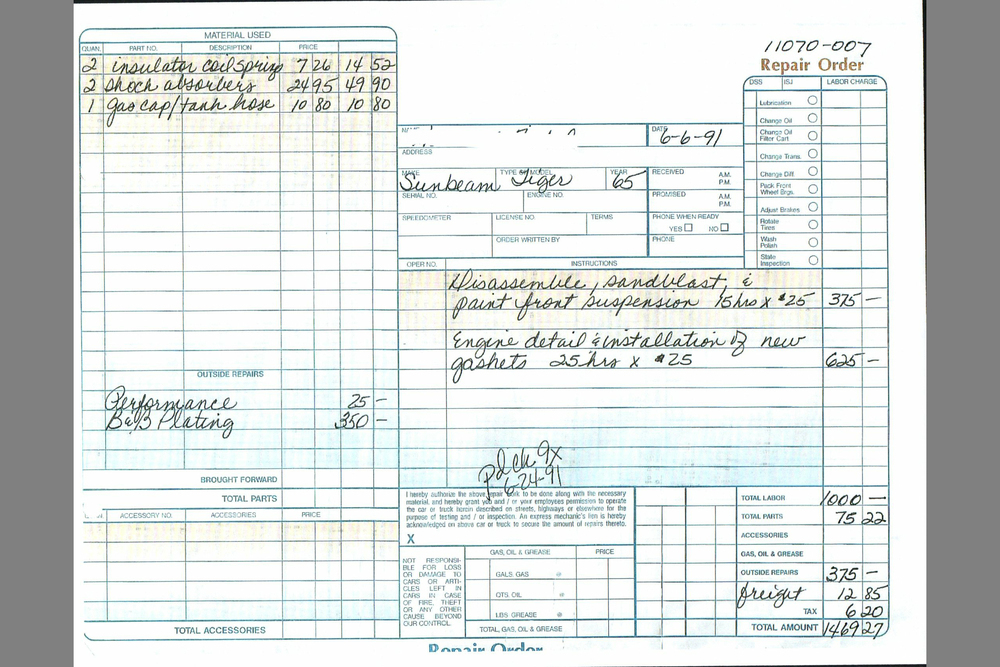 MATERIAL USED
QUAN. PART NO. DESCRIPTION PRICE
2 insulator coil spring 7 26 14 52
2 shock absorbers 24 95 49 90
1 gas cap/tank hose 10 80 10 80
OUTSIDE REPAIRS
Performance 25 —
B&B Plating 350 —
BROUGHT FORWARD
TOTAL PARTS
ACCESSORY NO. ACCESSORIES PRICE
TOTAL ACCESSORIES
11070-007
Repair Order
DSS ISJ LABOR CHARGE
Lubrication
Change Oil
Change Oil Filter Cart
Change Trans.
Change Diff.
Pack Front Wheel Brgs.
Adjust Brakes
Rotate Tires
Wash Polish
State Inspection
DATE 6-6-91
ADDRESS
MAKE Sunbeam TYPE OR MODEL Tiger YEAR 65 RECEIVED A.M. P.M.
SERIAL NO. ENGINE NO. PROMISED A.M. P.M.
SPEEDOMETER LICENSE NO. TERMS PHONE WHEN READY
YES NO
ORDER WRITTEN BY PHONE
OPER NO. INSTRUCTIONS
Disassemble, sandblast, &
paint front suspension 15 hrs x $25 375 —
Engine detail & installation of new
gaskets 25 hrs x $25 625 —
pd ck
6-24-91
I hereby authorize the above repair work to be done along with the necessary
material, and hereby grant you and / or your employees permission to operate
the car or truck herein described on streets, highways or elsewhere for the
purpose of testing and / or inspection. An express mechanic's lien is hereby
acknowledged on above car or truck to secure the amount of repairs thereto.
X
NOT RESPONSI-
BLE FOR LOSS
OR DAMAGE TO
CARS OR ARTI-
CLES LEFT IN
CARS IN CASE
OF FIRE, THEFT
OR ANY OTHER
CAUSE BEYOND
OUR CONTROL.
GAS, OIL & GREASE PRICE
GALS. GAS @
QTS. OIL @
LBS GREASE @
TOTAL, GAS, OIL & GREASE
TOTAL LABOR 1000 —
TOTAL PARTS 75 22
ACCESSORIES
GAS, OIL & GREASE
OUTSIDE REPAIRS 375 —
freight 12 85
TAX 6 20
TOTAL AMOUNT 1469 27
Repair Order